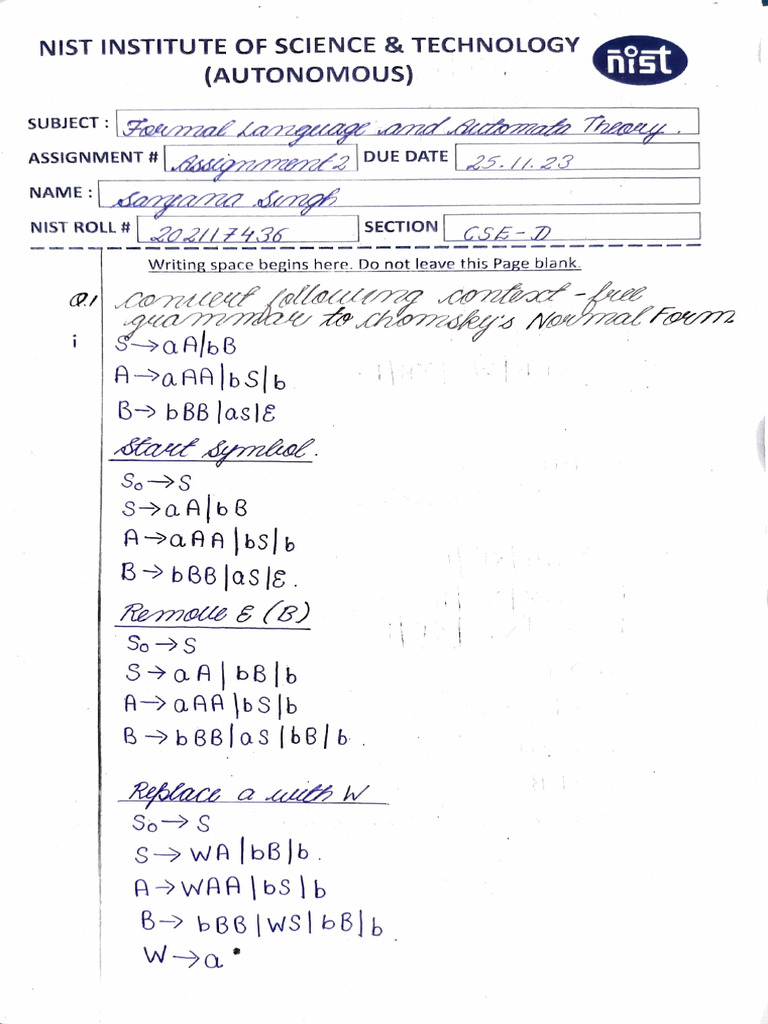 NIST INSTITUTE OF SCIENCE & TECHNOLOGY
(AUTONOMOUS)
nist
SUBJECT : Formal Language and Automata Theory.
ASSIGNMENT # Assignment 2 DUE DATE 25.11.23
NAME : Sanjana Singh
NIST ROLL # 202117436 SECTION CSE-D
Writing space begins here. Do not leave this Page blank.
Q.1 convert following context-free
grammar to Chomsky's Normal Form
i S→aA|bB
A→aAA|bS|b
B→bBB|as|ε
Start Symbol.
S₀→S
S→aA|bB
A→aAA|bS|b
B→bBB|aS|ε.
Remove ε (B)
S₀→S
S→aA|bB|b
A→aAA|bS|b
B→bBB|aS|bB|b.
Replace a with W
S₀→S
S→WA|bB|b.
A→WAA|bS|b
B→bBB|WS|bB|b
W→a